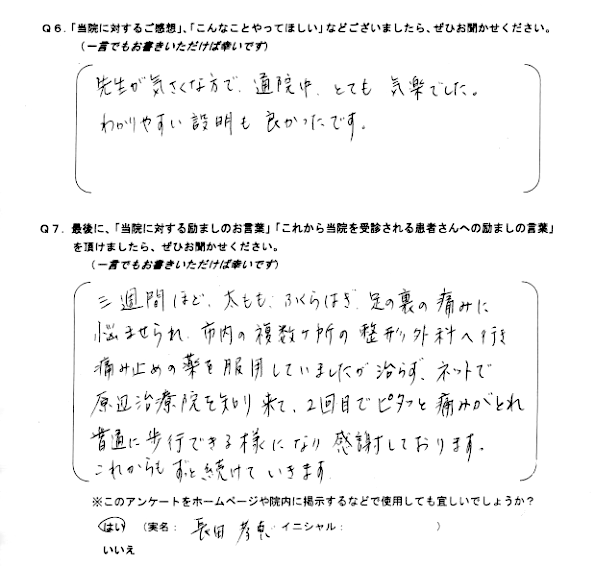 Q6.「当院に対するご感想」、「こんなことやってほしい」などございましたら、ぜひお聞かせください。
(一言でもお書きいただけば幸いです)
先生が気さくな方で、通院中、とても気楽でした。
わかりやすい説明も良かったです。
Q7. 最後に、「当院に対する励ましのお言葉」「これから当院を受診される患者さんへの励ましの言葉」
を頂けましたら、ぜひお聞かせください。
(一言でもお書きいただけば幸いです)
三週間ほど、太もも、ふくらはぎ、足の裏の痛みに
悩ませられ、市内の複数ヶ所の整形外科へ行き
痛み止めの薬を服用していましたが治らず、ネットで
原辺治療院を知り来て、2回目でピタッと痛みがとれ
普通に歩行できる様になり感謝しております。
これからもずっと続けていきます
※このアンケートをホームページや院内に掲示するなどで使用しても宜しいでしょうか?
はい (実名: 長田 イニシャル: )
いいえ